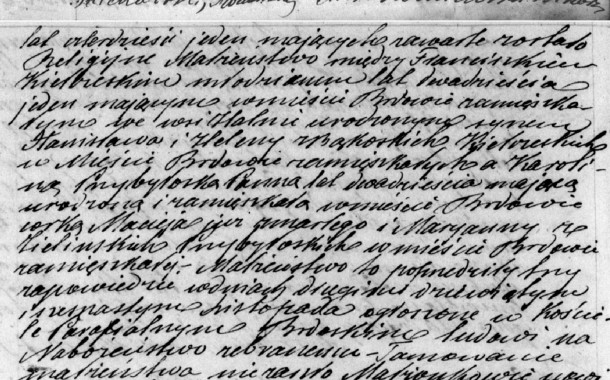 lat czterdzieści jeden mających zawarte zostało
Religijne Małżeństwo między Franciszkiem
młodzianem lat dwadzieścia
jeden mającym w mieście Brdowie zamieszka
łym we wsi urodzonym synem
Stanisława i Heleny z Bąkoskich
w Mieście Brdowie zamieszkałych a Karoli-
ną Przybyloską Panną lat dwadzieścia mającą
urodzoną i zamieszkałą w mieście Brdowie
córką Macieja już zmarłego i Maryanny z
Zielińskich Przybyloskich w mieście Brdowie
zamieszkałej. Małżeństwo to poprzedziły trzy
zapowiedzie w dniach drugim dziewiątym
i szesnastym Listopada ogłoszone w Koście-
le Parafialnym Brdoskim ludowi na
Nabożeństwo zebranemu – Tamowanie
małżeństwa nie zaszło Małżonkowie nowi